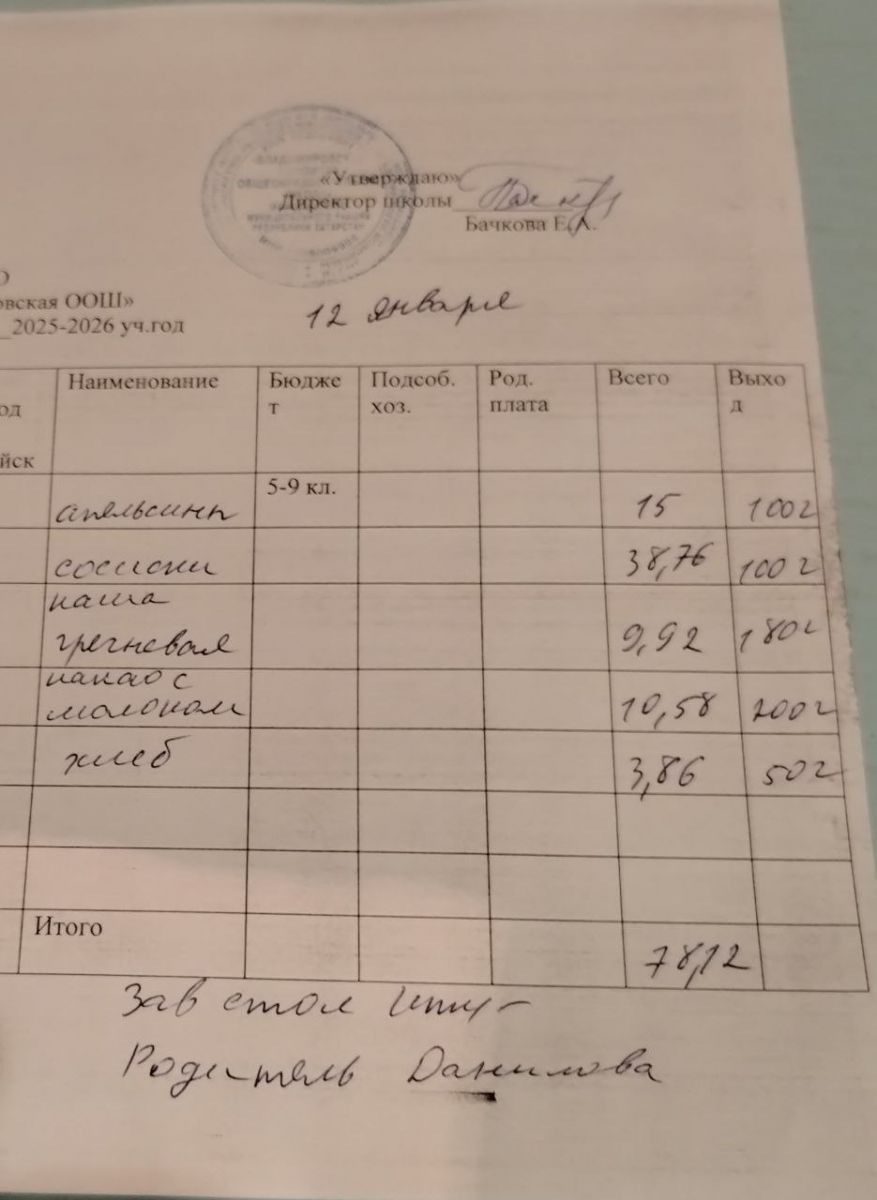 «Утверждаю»
Директор школы
Бачкова Е.А.
О
овская ООШ»
_2025-2026 уч.год
12 января
од
йск
Наименование
Бюдже
т
Подсоб.
хоз.
Род.
плата
Всего
Выхо
д
5-9 кл.
апельсины 15 100г
сосиски 38,76 100г
каша
гречневая 9,92 180г
какао с
молоком 10,58 200г
хлеб 3,86 50г
Итого 78,12
Зав стол
Родитель Данилова